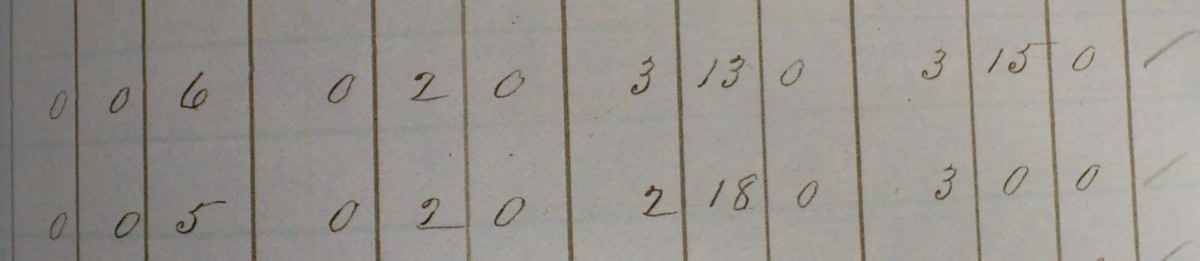 0 0 6 0 2 0 3 13 0 3 15 0
0 0 5 0 2 0 2 18 0 3 0 0